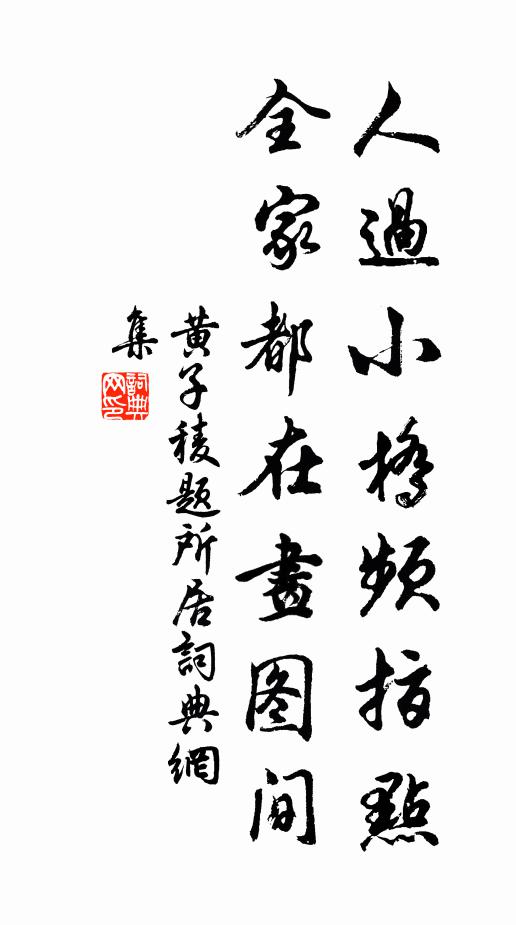 人過小橋頻指點
全家都在畫图間
黄子稜题所居詞典網
集
詞典
网印